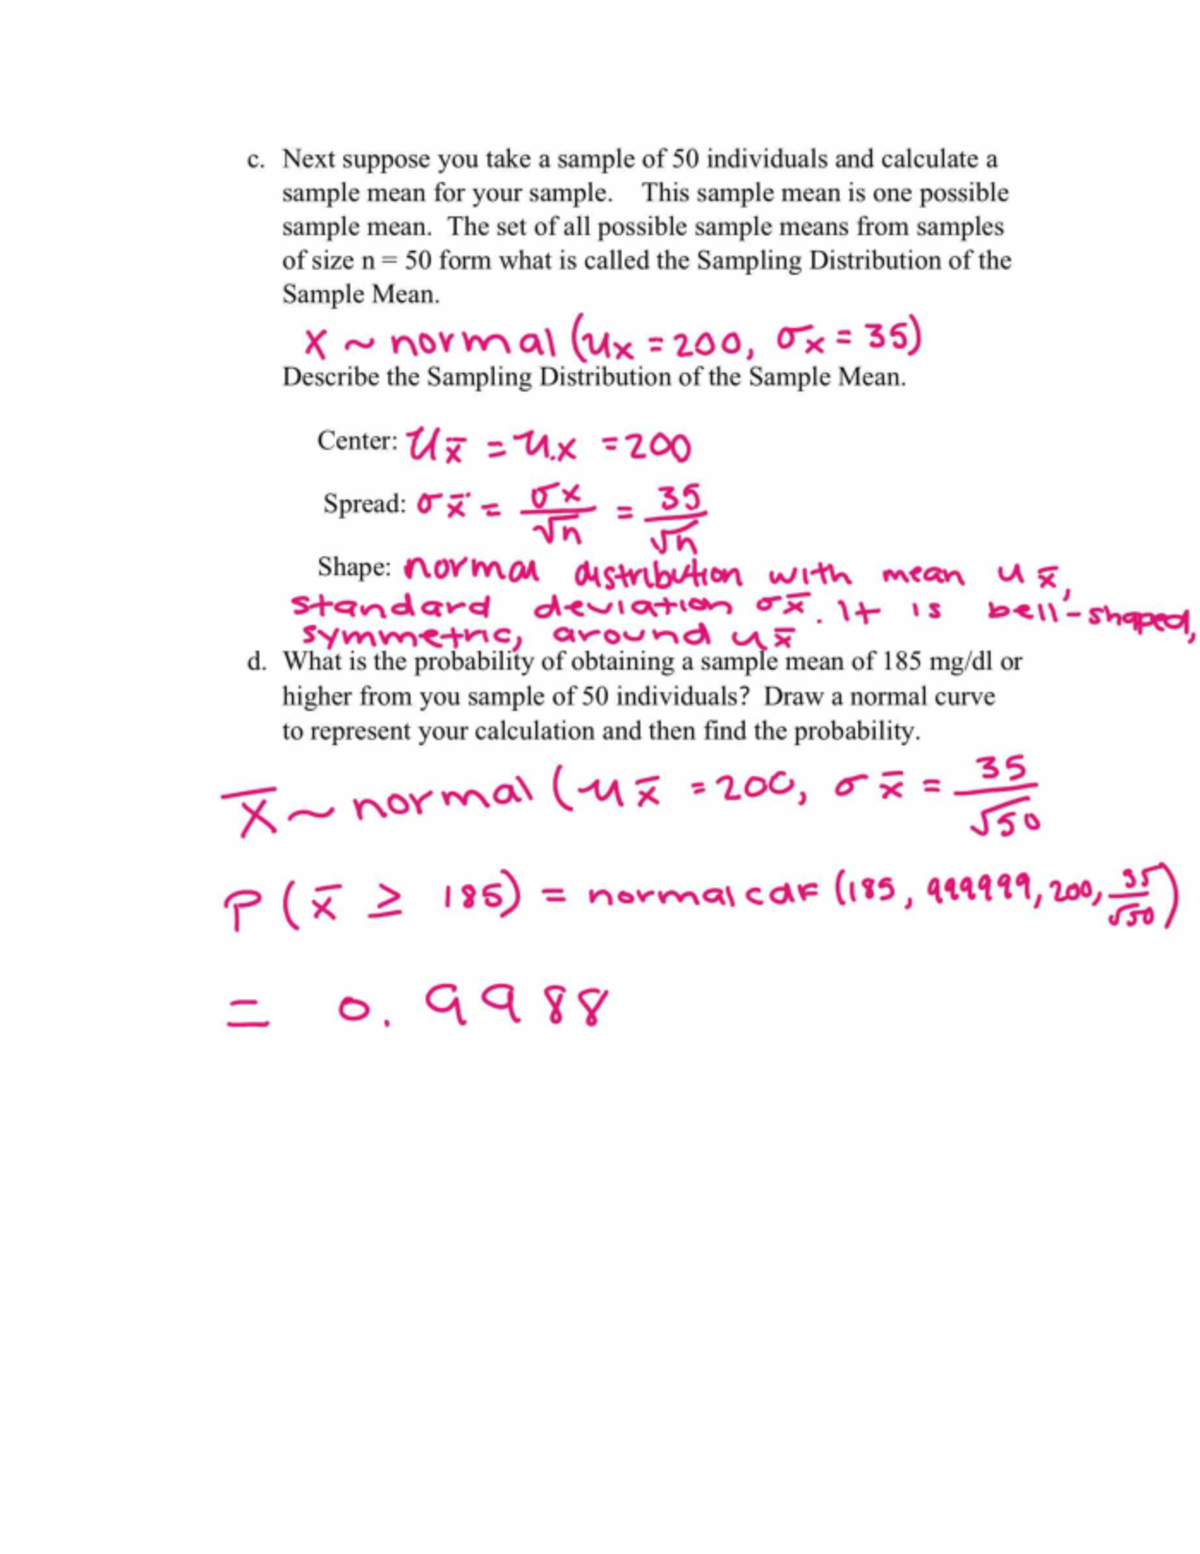 c. Next suppose you take a sample of 50 individuals and calculate a
sample mean for your sample. This sample mean is one possible
sample mean. The set of all possible sample means from samples
of size n = 50 form what is called the Sampling Distribution of the
Sample Mean.
x ~ normal (ux = 200, σx = 35)
Describe the Sampling Distribution of the Sample Mean.
Center: ux̄ = u.x = 200
Spread: σx̄ = σx/√n = 35/√n
Shape: normal distribution with mean ux̄,
standard deviation σx̄. It is bell-shaped,
symmetric, around ux̄
d. What is the probability of obtaining a sample mean of 185 mg/dl or
higher from you sample of 50 individuals? Draw a normal curve
to represent your calculation and then find the probability.
X̄ ~ normal (ux̄ = 200, σx̄ = 35/√50
P(x̄ ≥ 185) = normalcdf (185, 999999, 200, 35/√50)
= 0.9988